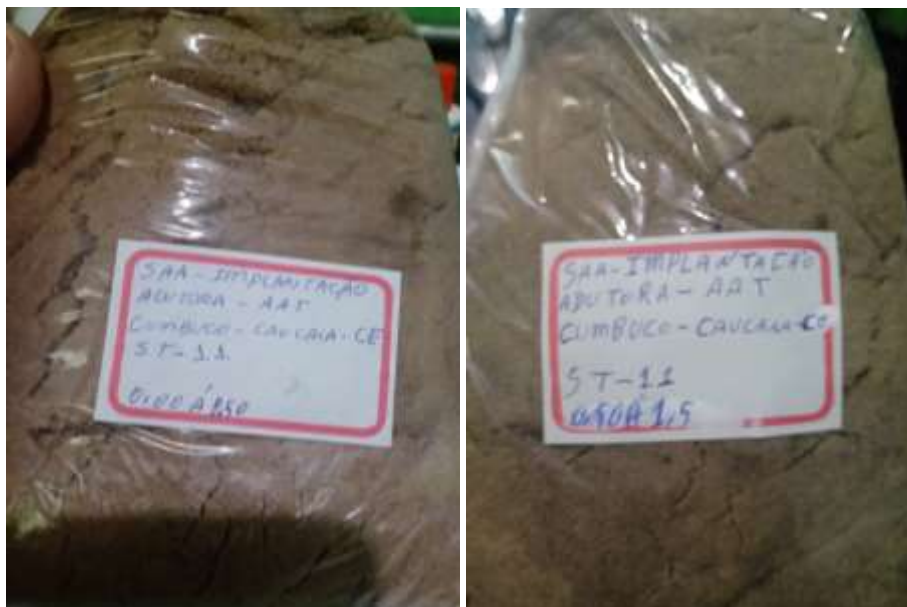 SAA-IMPLANTAÇÃO
ADUTORA - AAT
CUMBUCO-CAUCAIA-CE
ST-11
0,00 À 0,50
SAA-IMPLANTAÇÃO
ADUTORA - AAT
CUMBUCO-CAUCAIA-CE
ST-11
0,50 A 1,5